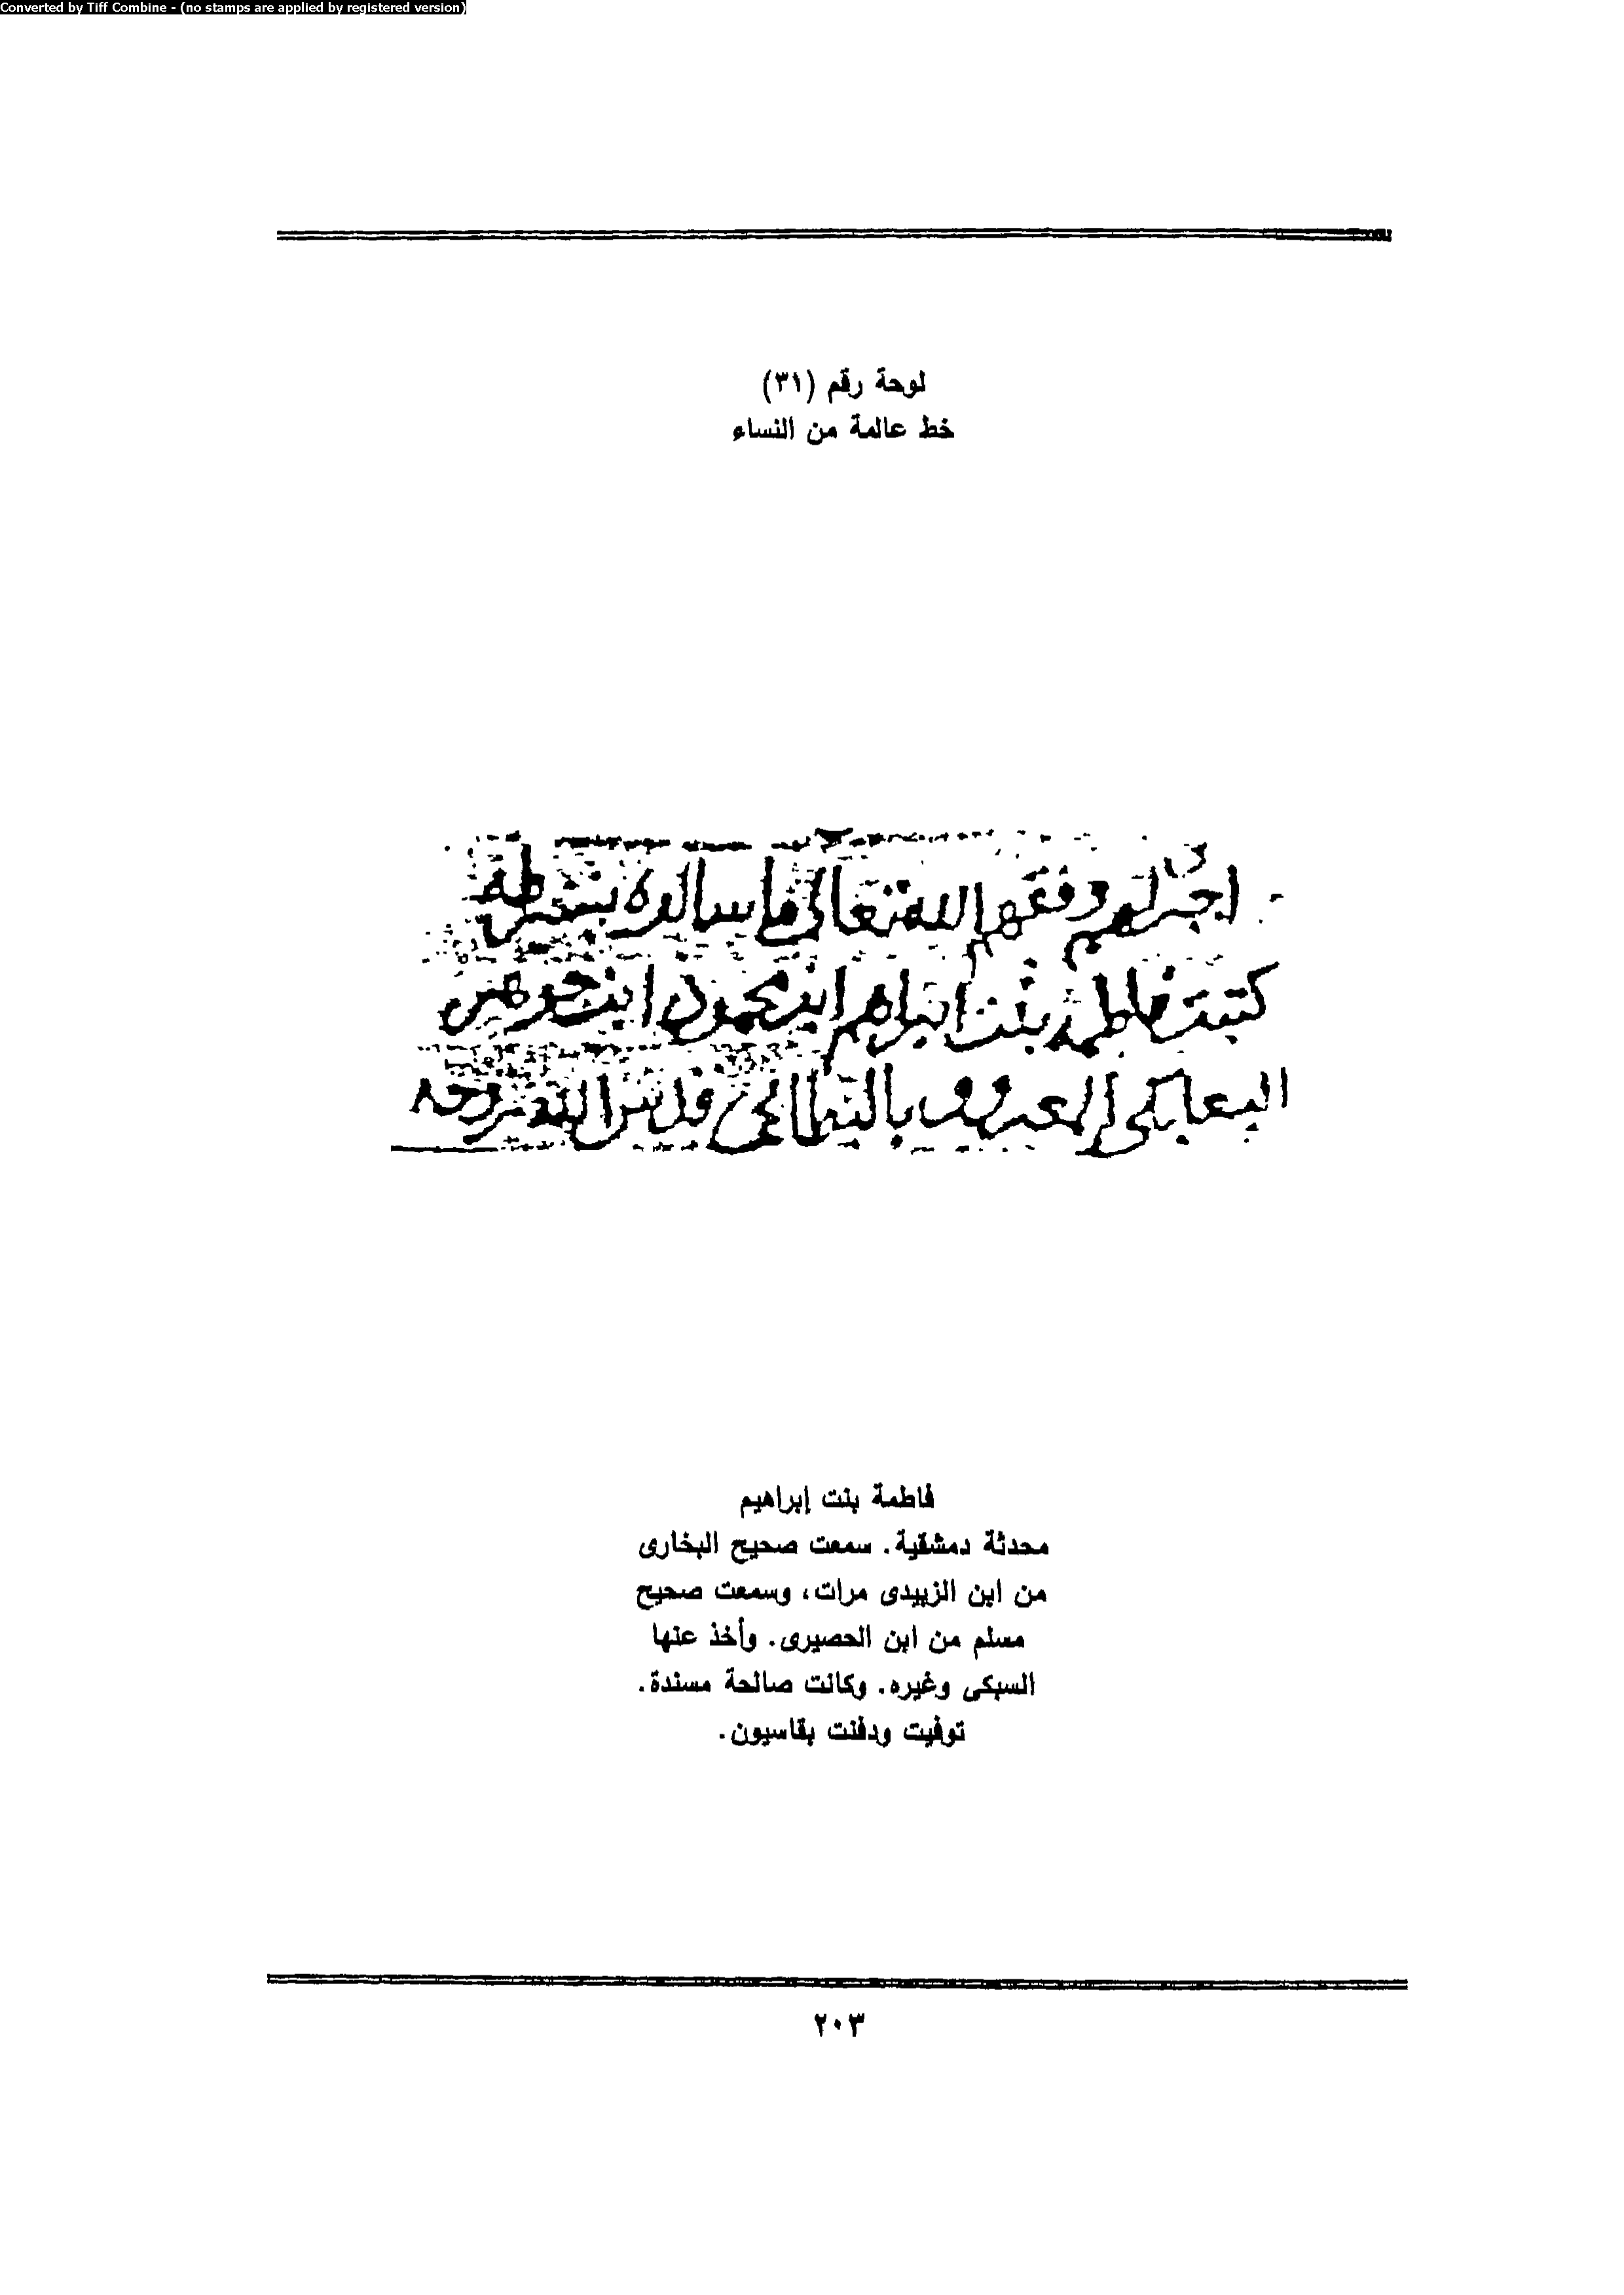 Converted by Tiff Combine - (no stamps are applied by registered version)
لوحة رقم (٣١)
خط عالمة من النساء
اجزت لهم وفقهم الله تعالى ما سالوه بشرطه
كتبت فاطمة بنت ابراهيم ابن محمود ابن جوهر
البعلبكي المعروف بالبطائحي قدس الله روحه
فاطمة بنت إبراهيم
محدثة دمشقية. سمعت صحيح البخارى
من ابن الزبيدى مرات، وسمعت صحيح
مسلم من ابن الحصيرى. وأخذ عنها
السبكى وغيره. وكانت صالحة مسندة.
توفيت ودفنت بقاسيون.
٢٠٣